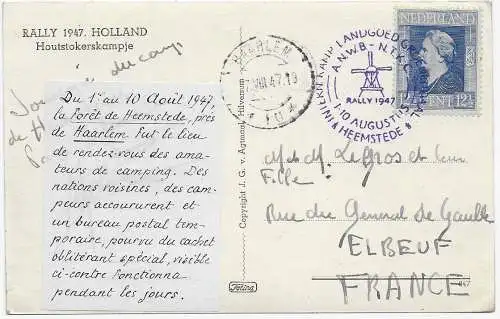 RALLY 1947. HOLLAND
Houtstokerskampje
du camp
Du 1er au 10 Août 1947,
la Forêt de Heemstede, près
de Haarlem fut le lieu
de rendez-vous des ama-
teurs de camping. Des
nations voisines, des cam-
peurs accoururent et
un bureau postal tem-
poraire, pourvu du cachet
oblitérant spécial, visible
ci-contre fonctionna
pendant les jours.
Copyright J. G. v. Agtmaal, Hilversum
Fotins
HAARLEM
VIII 47.19
INTERN. KAMP LANDGOED
A.N.W.B. - N.T.K.
RALLY 1947
1-10 AUGUSTUS
HEEMSTEDE
NEDERLAND
12½
M et M. Legros et leur
Fille
Rue du General de Gaulle
ELBEUF
FRANCE